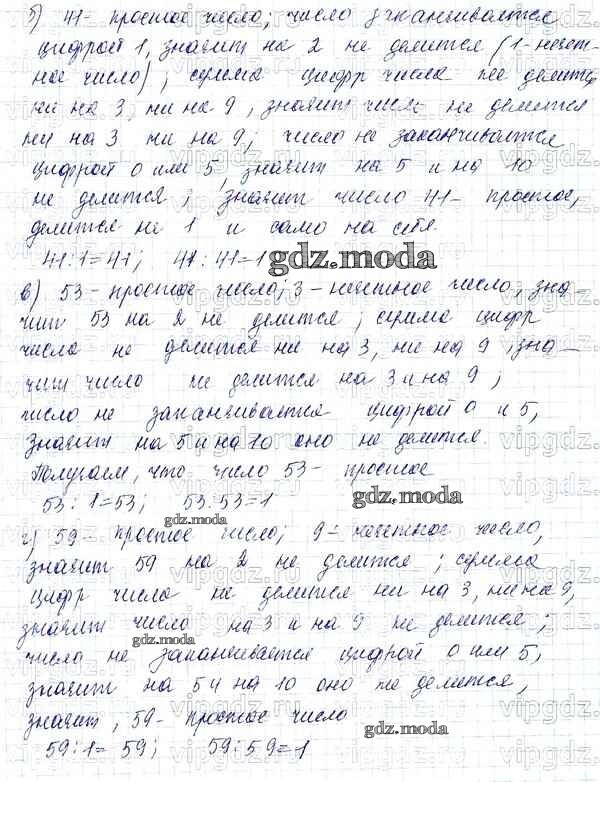 б) 41 - простое число; число заканчивается
цифрой 1, значит на 2 не делится (1 - нечет-
ное число); сумма цифр числа не делится
ни на 3, ни на 9, значит число не делится
ни на 3 ни на 9; число не заканчивается
цифрой 0 или 5, значит на 5 и на 10
не делится; значит число 41 - простое,
делится на 1 и само на себя.
41:1=41; 41:41=1
gdz.moda
в) 53 - простое число; 3 - нечетное число, зна-
чит 53 на 2 не делится; сумма цифр
числа не делится ни на 3, ни на 9, зна-
чит число не делится на 3 и на 9;
число не заканчивается цифрой 0 и 5,
значит на 5 и на 10 оно не делится.
Получаем, что число 53 - простое
53:1=53; 53:53=1
gdz.moda
gdz.moda
г) 59 - простое число; 9 - нечетное число,
значит 59 на 2 не делится; сумма
цифр числа не делится ни на 3, ни на 9,
значит число на 3 и на 9 не делится;
gdz.moda
число не заканчивается цифрой 0 или 5,
значит на 5 и на 10 оно не делится,
значит, 59 - простое число
gdz.moda
59:1=59; 59:59=1